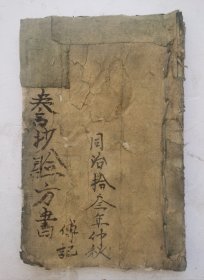 同治拾叁年仲秋
傅記
抄驗方書